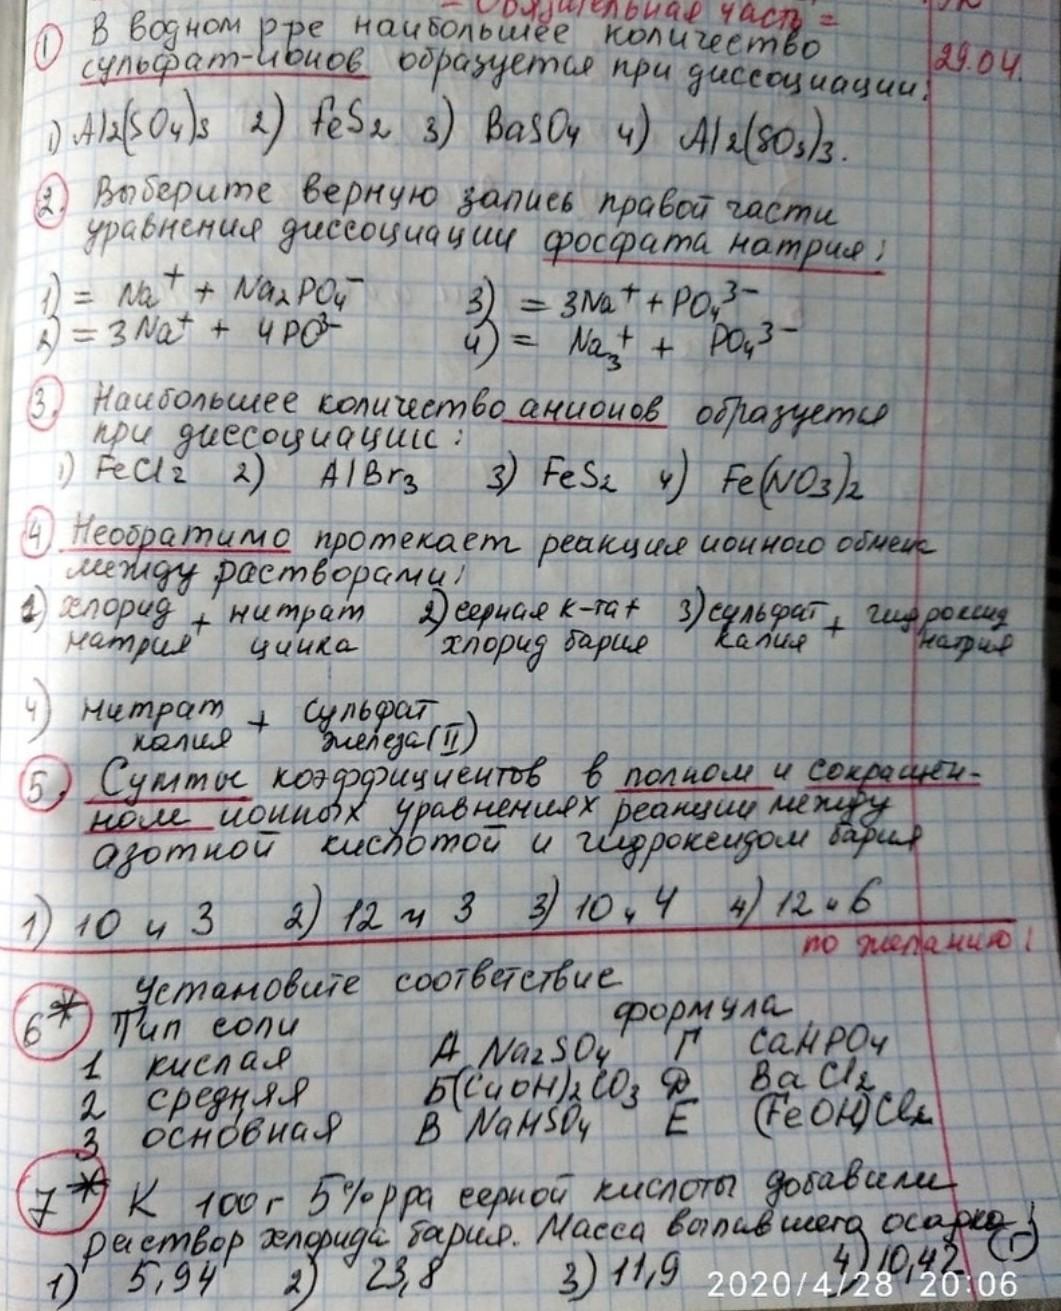 = Обязательная часть =
29.04.
① В водном р-ре наибольшее количество
сульфат-ионов образуется при диссоциации:
1) Al2(SO4)3 2) FeS2 3) BaSO4 4) Al2(SO3)3.
2. Выберите верную запись правой части
уравнения диссоциации фосфата натрия:
1) = Na⁺ + Na2PO4⁻ 3) = 3Na⁺ + PO4³⁻
2) = 3Na⁺ + 4PO³⁻ 4) = Na3⁺ + PO4³⁻
3. Наибольшее количество анионов образуется
при диссоциации:
1) FeCl2 2) AlBr3 3) FeS2 4) Fe(NO3)2
4 Необратимо протекает реакция ионного обмена
между растворами:
1) хлорид + нитрат 2) серная к-та + 3) сульфат + гидроксид
натрия цинка хлорид бария калия натрия
4) нитрат + сульфат
калия железа (II)
5. Суммы коэффициентов в полном и сокращён-
ном ионных уравнениях реакции между
азотной кислотой и гидроксидом бария
1) 10 и 3 2) 12 и 3 3) 10 и 4 4) 12 и 6
по желанию!
6* Установите соответствие
Тип соли формула
1 кислая А Na2SO4 Г CaHPO4
2 средняя Б (CuOH)2CO3 Д BaCl2
3 основная В NaHSO4 Е (FeOH)Cl2
7* К 100 г 5% р-ра серной кислоты добавили
раствор хлорида бария. Масса выпавшего осадка (г)
1) 5,94 2) 23,8 3) 11,9 4) 10,42
2020/4/28 20:06